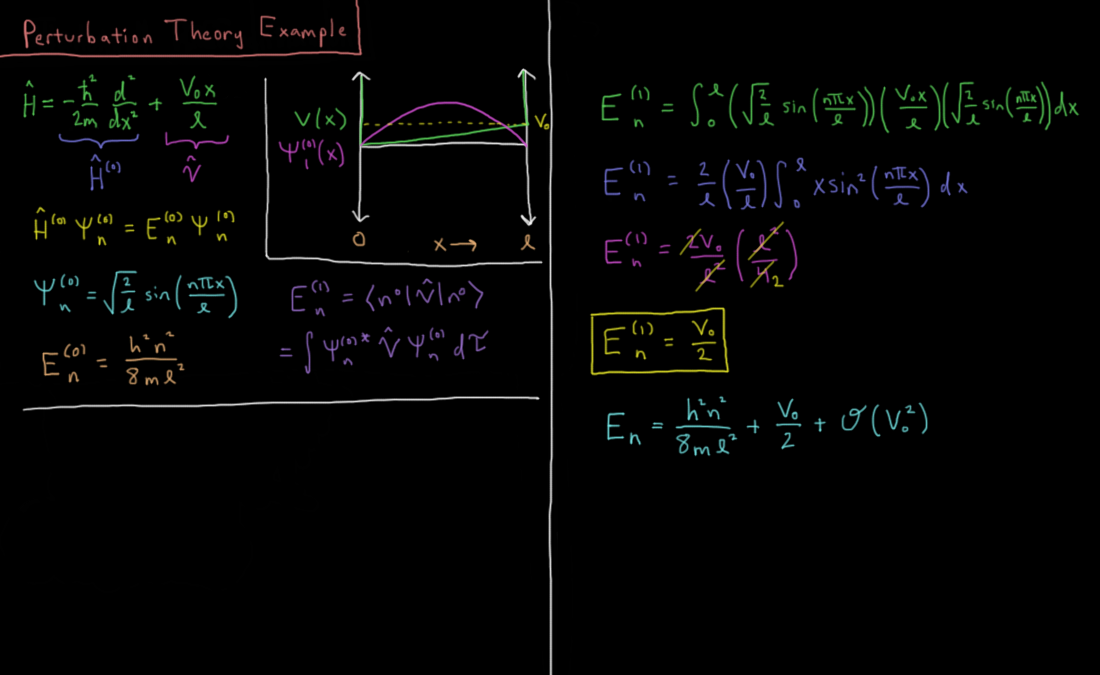 Perturbation Theory Example
Ĥ = -ħ²/2m d²/dx² + V₀x/l
Ĥ⁽⁰⁾ V̂
Ĥ⁽⁰⁾ Ψₙ⁽⁰⁾ = Eₙ⁽⁰⁾ Ψₙ⁽⁰⁾
Ψₙ⁽⁰⁾ = √(2/l) sin(nπx/l)
Eₙ⁽⁰⁾ = h²n²/8ml²
V(x)
V₀
Ψ₁⁽⁰⁾(x)
0 x→ l
Eₙ⁽¹⁾ = ⟨n⁰|V̂|n⁰⟩
= ∫ Ψₙ⁽⁰⁾* V̂ Ψₙ⁽⁰⁾ dτ
Eₙ⁽¹⁾ = ∫₀ˡ (√(2/l) sin(nπx/l)) (V₀x/l) (√(2/l) sin(nπx/l)) dx
Eₙ⁽¹⁾ = 2/l (V₀/l) ∫₀ˡ x sin²(nπx/l) dx
Eₙ⁽¹⁾ = 2V₀/l² (l²/4 2)
Eₙ⁽¹⁾ = V₀/2
Eₙ = h²n²/8ml² + V₀/2 + O(V₀²)